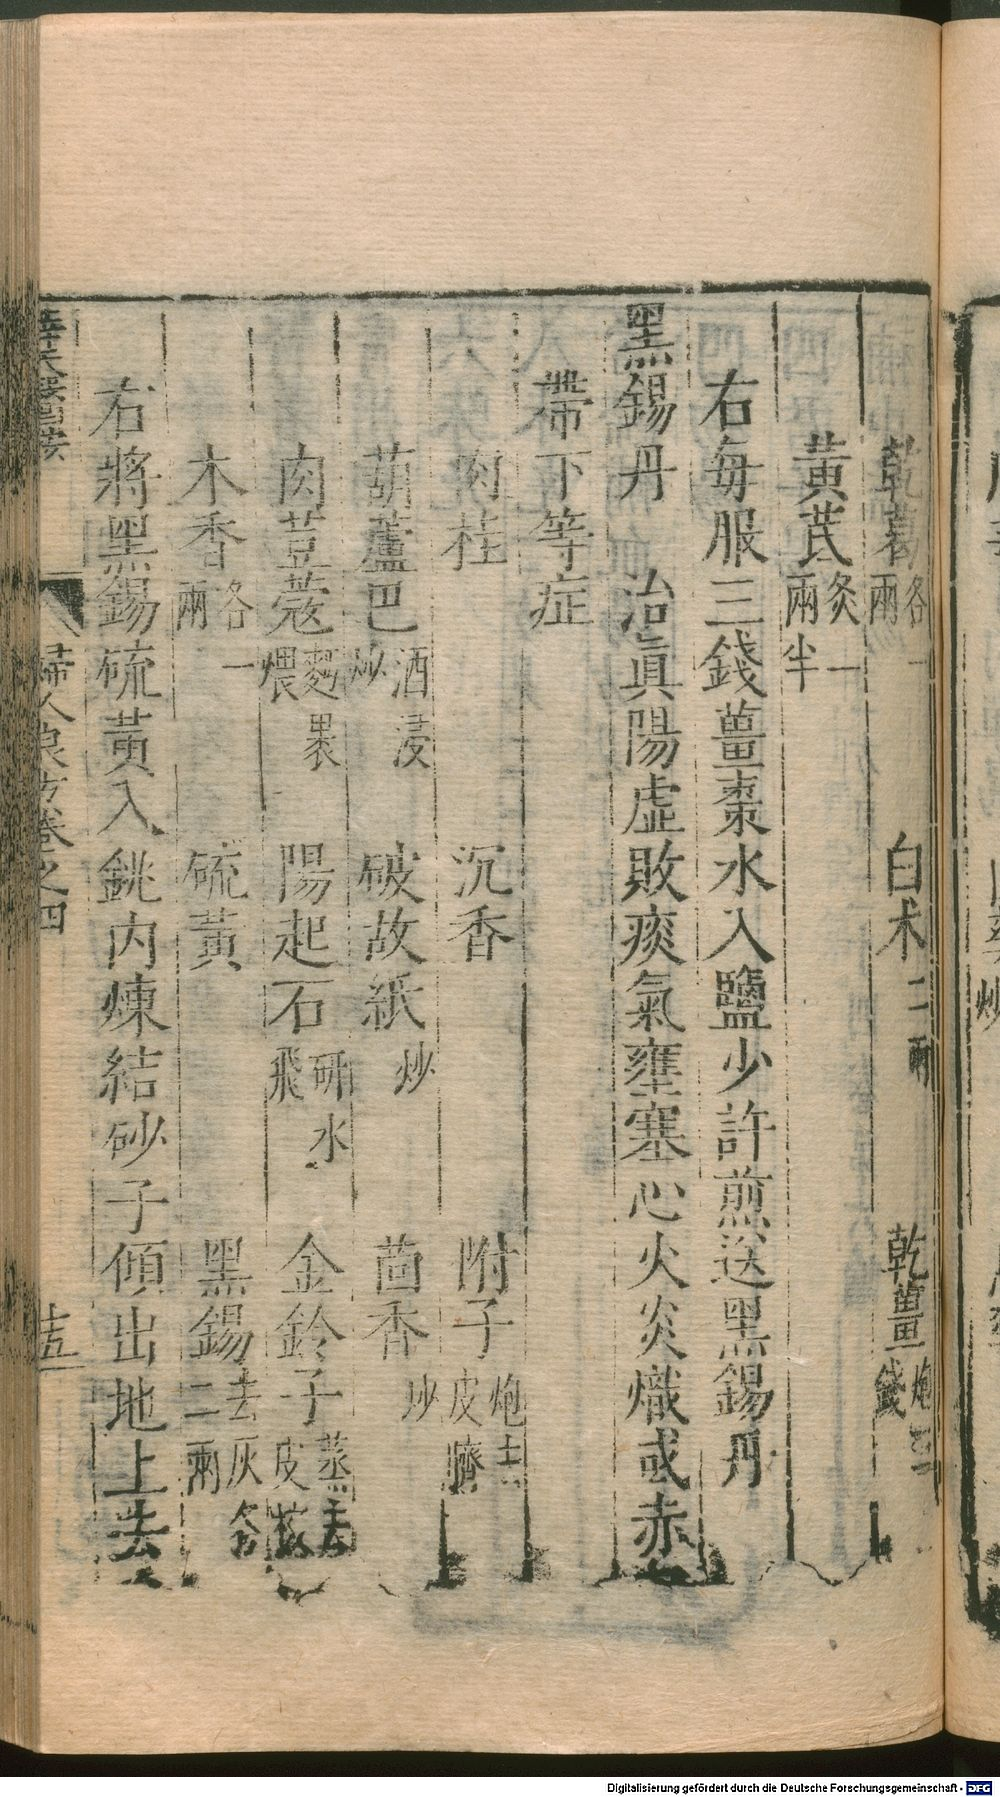 乾葛各一兩　白朮二兩　乾薑炮三錢
黃芪炙一兩半
右每服三錢薑棗水入鹽少許煎送黑錫丹
黑錫丹　治眞陽虛敗痰氣壅塞心火炎熾或赤
帶下等症
肉桂　沉香　附子炮去皮臍
葫蘆巴酒浸炒　破故紙炒　茴香炒
肉荳蔻麪裹煨　陽起石研水飛　金鈴子蒸去皮核
木香各一兩　硫黃　黑錫去灰各二兩
右將黑錫硫黃入銚內煉結砂子傾出地上去
婦人良方卷之四
十五
Digitalisierung gefördert durch die Deutsche Forschungsgemeinschaft - DFG